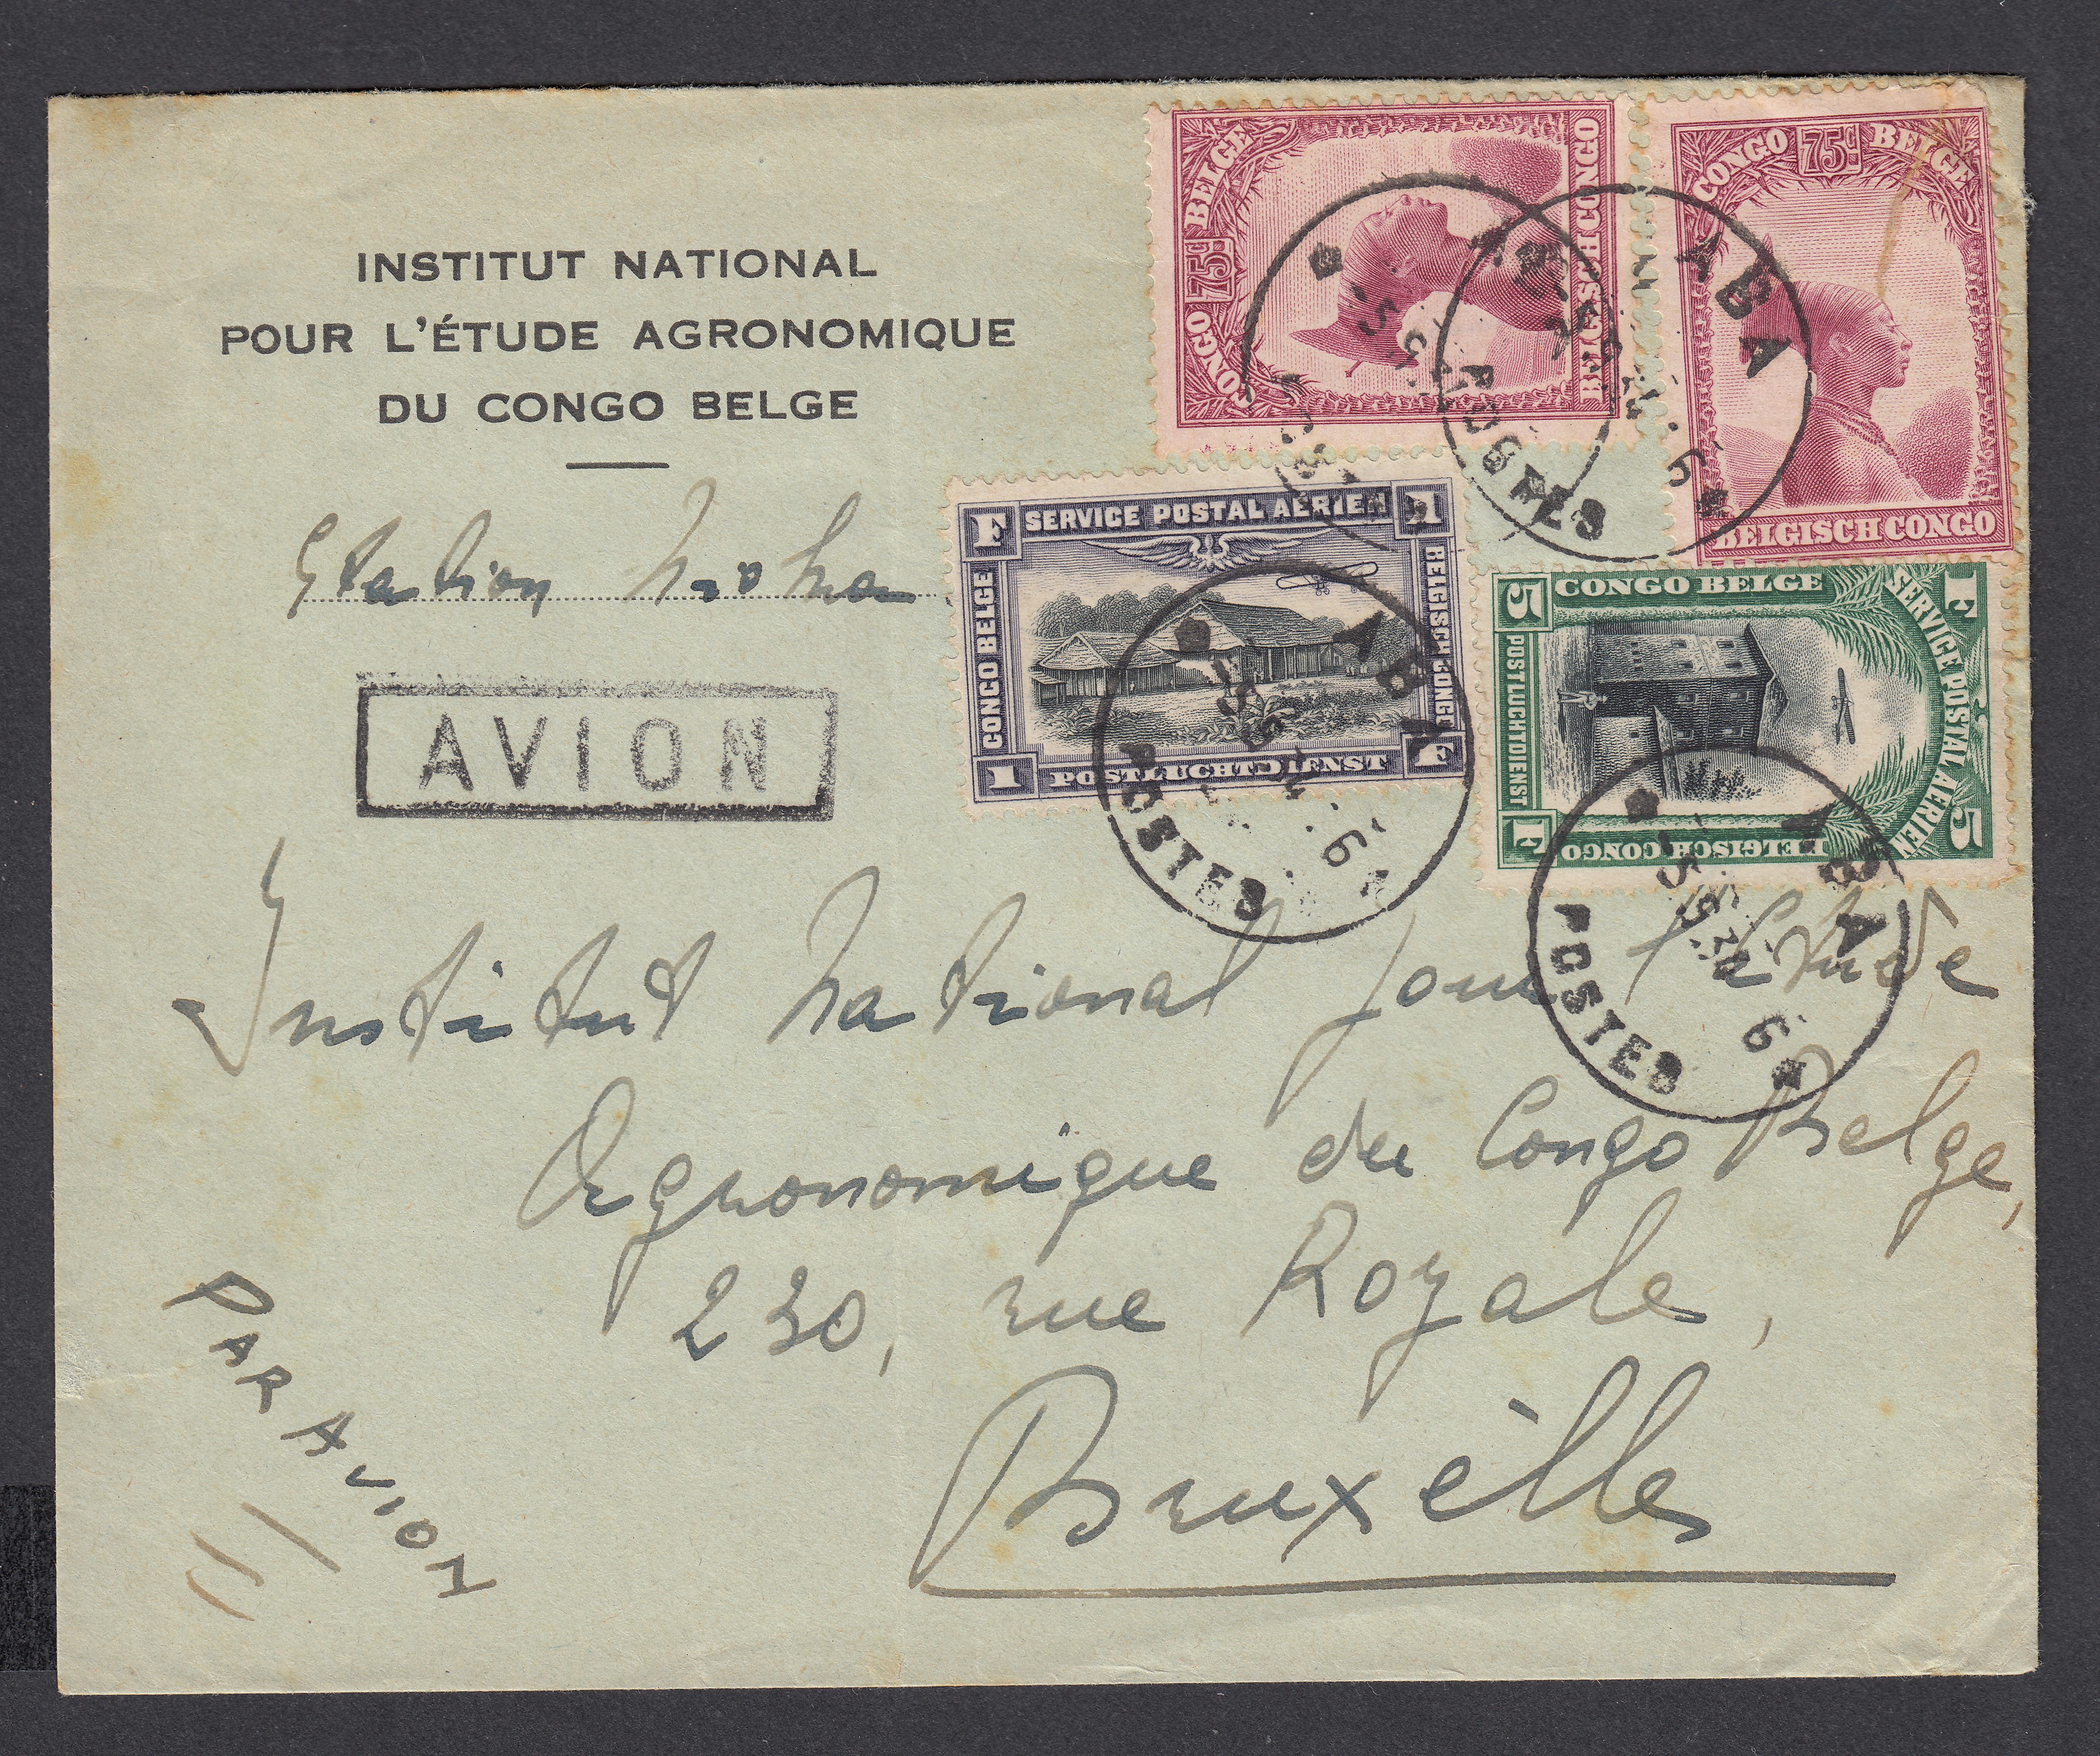 INSTITUT NATIONAL
POUR L'ÉTUDE AGRONOMIQUE
DU CONGO BELGE
Station Nioka
AVION
CONGO 75c BELGE
BELGISCH CONGO
CONGO 75c BELGE
BELGISCH CONGO
1 F
SERVICE POSTAL AÉRIEN
CONGO BELGE
BELGISCH CONGO
POSTLUCHTDIENST
1 F
5 F
CONGO BELGE
SERVICE POSTAL AÉRIEN
POSTLUCHTDIENST
BELGISCH CONGO
F 5
ABA
POSTES
ABA
POSTES
ABA
POSTES
Institut National pour l'étude
Agronomique du Congo Belge,
230, rue Royale,
Bruxèlles
PAR AVION